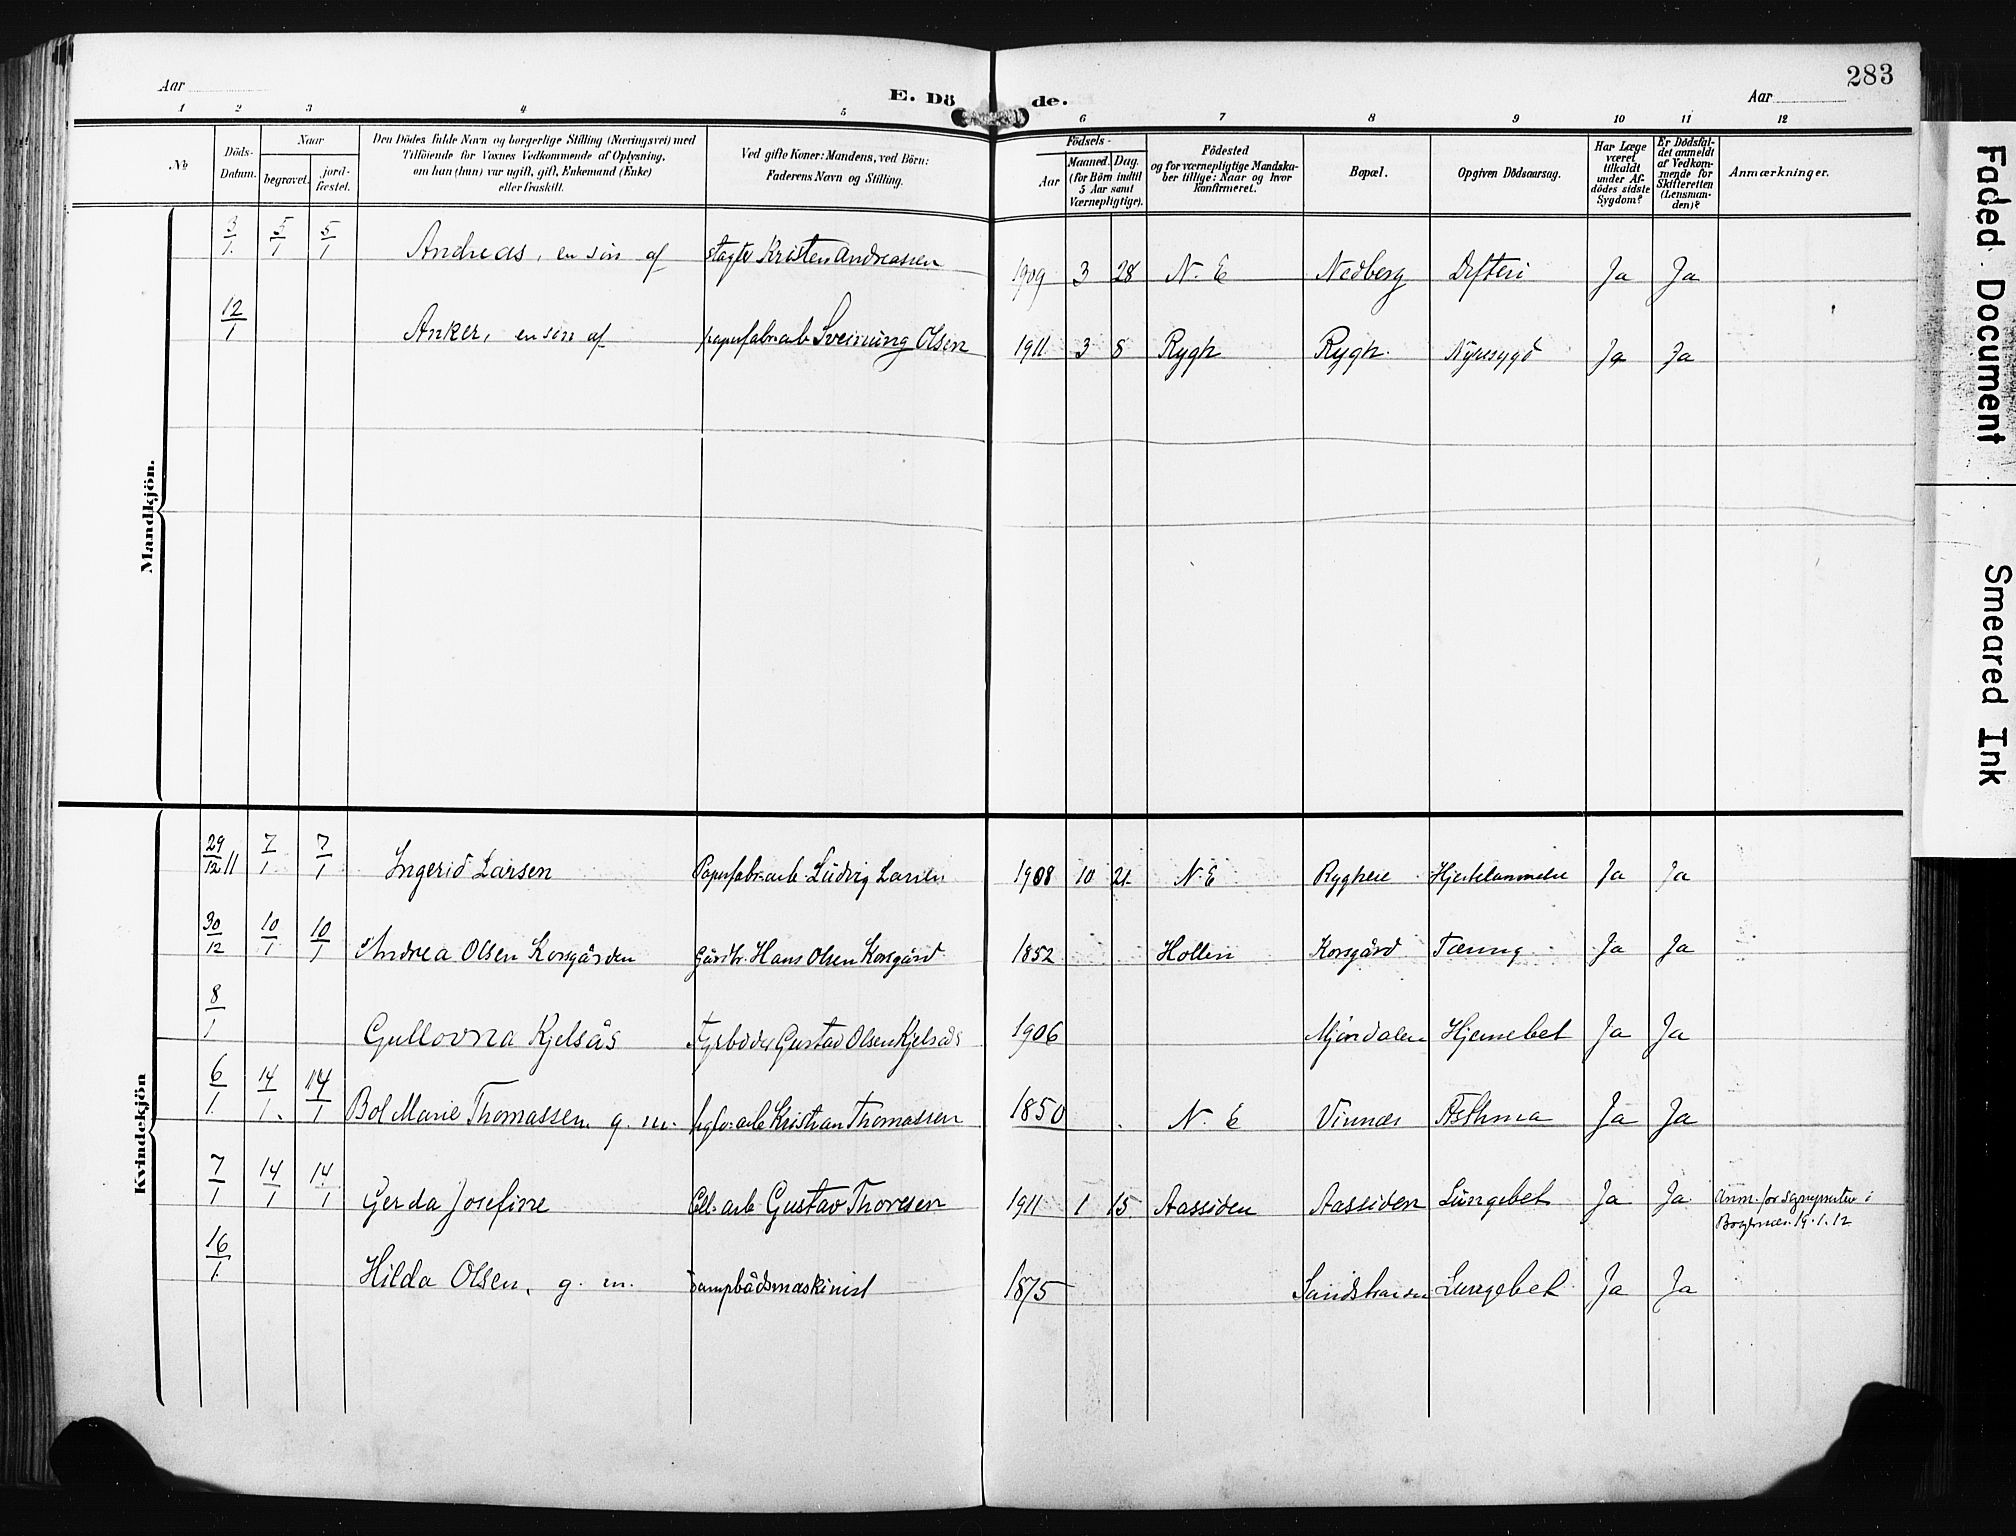 283
Aar
E. Dö de.
Aar
1 2 3 4 5 6 7 8 9 10 11 12
№ Döds-Datum. Naar begravet. jord-fæstet. Den Dödes fulde Navn og borgerlige Stilling (Næringsvei) med Tilföiende for Voxnes Vedkommende af Oplysning, om han (hun) var ugift, gift, Enkemand (Enke) eller fraskilt. Ved gifte Koner: Mandens, ved Börn: Faderens Navn og Stilling. Födsels- Aar Maaned. Dag. (for Börn indtil 5 Aar samt Værnepligtige). Födested og for værnepligtige Mandskaber tillige: Naar og hvor konfirmeret. Bopæl. Opgiven Dödsaarsag. Har Læge været tilkaldt under Afdödes sidste Sygdom? Er Dödsfaldet anmeldt af Vedkommende for Skifteretten (Lensmanden)? Anmærkninger.
Mandkjön.
3/1 5/1 5/1 Andreas, en sön af Kristen Andreassen 1909 3 28 N. E Nedberg Difteri Ja Ja
12/1 Anker, en sön af papirfabr.arb Sveinung Olsen 1911 3 8 Rygh Rygh Nyresygd Ja Ja
Kvindekjön
29/12 11 7/1 7/1 Ingerid Larsen Papirfabr.arb. Ludvig Larsen 1908 10 21 N. E Ja Ja
30/12 10/1 10/1 Andrea Olsen Korsgården Hans Olsen Korsgård 1852 Hollen Korsgård Tæring Ja Ja
8/1 Gullovna Kjelsås Fyrböder Gustav Olsen Kjelsås 1906 Mjöndalen Hjernebet Ja Ja
6/1 14/1 14/1 Bol Marie Thomassen g. m. Kristian Thomassen 1850 N. E Vinnæs Asthma Ja Ja
7/1 14/1 14/1 Gerda Josefine Cell.arb Gustav Thoresen 1911 1 15 Aassiden Aassiden Lungebet Ja Ja Anm. for i
19.1.12
16/1 Hilda Olsen, g. m. Dampbådsmaskinist 1875 Lungebet Ja Ja
Faded Document
Smeared Ink